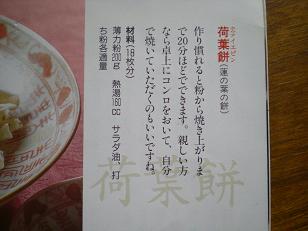 ホウイエピン
荷葉餅(蓮の葉の餅)
作り慣れると粉から焼き上がりま
で20分ほどでできます。親しい方
なら卓上にコンロをおいて、自分
で焼いていただくのもいいですね。
材料(18枚分)
薄力粉200g 熱湯160cc サラダ油、打
ち粉各適量
荷葉餅